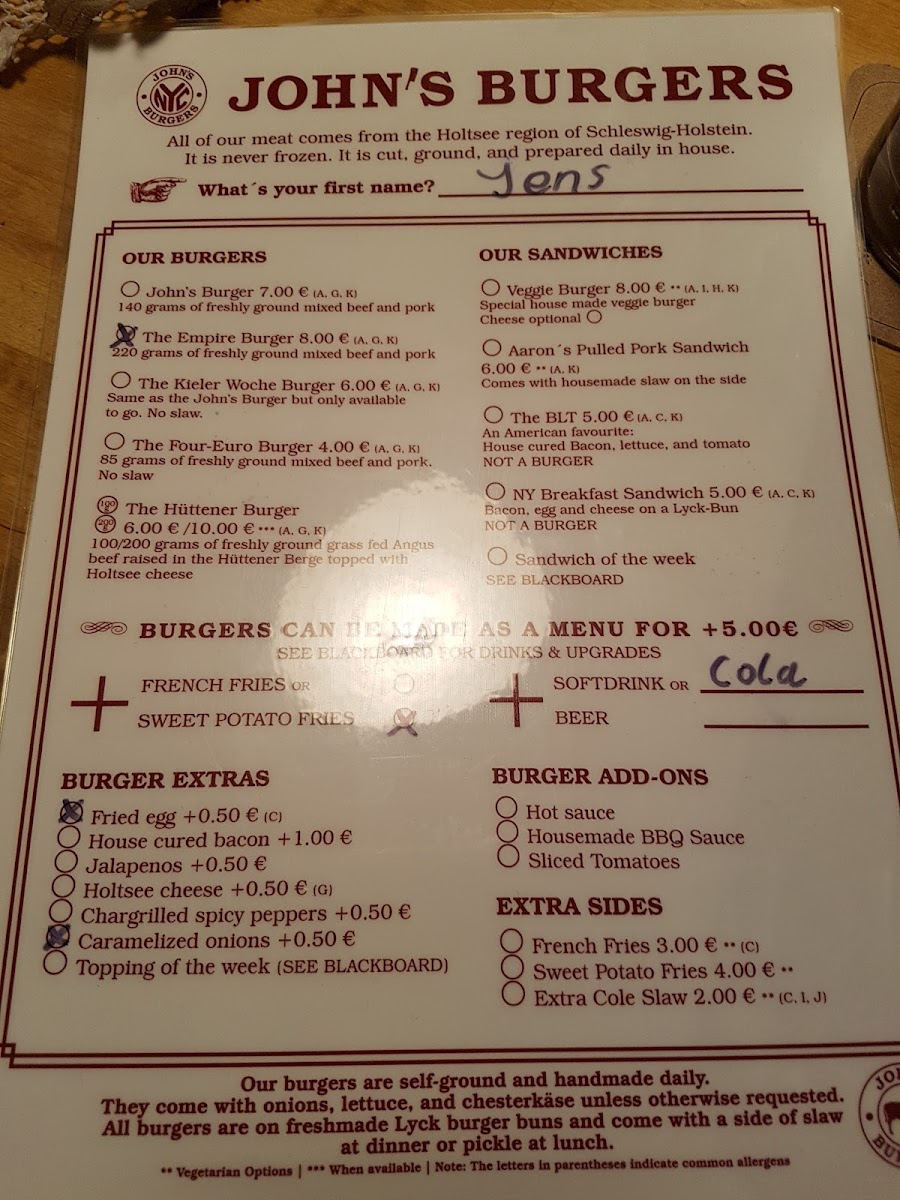 JOHN'S
NYC
BURGERS
JOHN'S BURGERS
All of our meat comes from the Holtsee region of Schleswig-Holstein.
It is never frozen. It is cut, ground, and prepared daily in house.
What´s your first name? Jens
OUR BURGERS
John's Burger 7.00 € (A, G, K)
140 grams of freshly ground mixed beef and pork
The Empire Burger 8.00 € (A, G, K)
220 grams of freshly ground mixed beef and pork
The Kieler Woche Burger 6.00 € (A, G, K)
Same as the John's Burger but only available
to go. No slaw.
The Four-Euro Burger 4.00 € (A, G, K)
85 grams of freshly ground mixed beef and pork.
No slaw
100 g The Hüttener Burger
200 g 6.00 € /10.00 € *** (A, G, K)
100/200 grams of freshly ground grass fed Angus
beef raised in the Hüttener Berge topped with
Holtsee cheese
OUR SANDWICHES
Veggie Burger 8.00 € ** (A, I, H, K)
Special house made veggie burger
Cheese optional
Aaron´s Pulled Pork Sandwich
6.00 € ** (A, K)
Comes with housemade slaw on the side
The BLT 5.00 € (A, C, K)
An American favourite:
House cured Bacon, lettuce, and tomato
NOT A BURGER
NY Breakfast Sandwich 5.00 € (A, C, K)
Bacon, egg and cheese on a Lyck-Bun
NOT A BURGER
Sandwich of the week
SEE BLACKBOARD
BURGERS CAN BE MADE AS A MENU FOR +5.00€
SEE BLACKBOARD FOR DRINKS & UPGRADES
+ FRENCH FRIES OR
SWEET POTATO FRIES
+ SOFTDRINK OR Cola
BEER
BURGER EXTRAS
Fried egg +0.50 € (C)
House cured bacon +1.00 €
Jalapenos +0.50 €
Holtsee cheese +0.50 € (G)
Chargrilled spicy peppers +0.50 €
Caramelized onions +0.50 €
Topping of the week (SEE BLACKBOARD)
BURGER ADD-ONS
Hot sauce
Housemade BBQ Sauce
Sliced Tomatoes
EXTRA SIDES
French Fries 3.00 € ** (C)
Sweet Potato Fries 4.00 € **
Extra Cole Slaw 2.00 € ** (C, I, J)
Our burgers are self-ground and handmade daily.
They come with onions, lettuce, and chesterkäse unless otherwise requested.
All burgers are on freshmade Lyck burger buns and come with a side of slaw
at dinner or pickle at lunch.
** Vegetarian Options | *** When available | Note: The letters in parentheses indicate common allergens